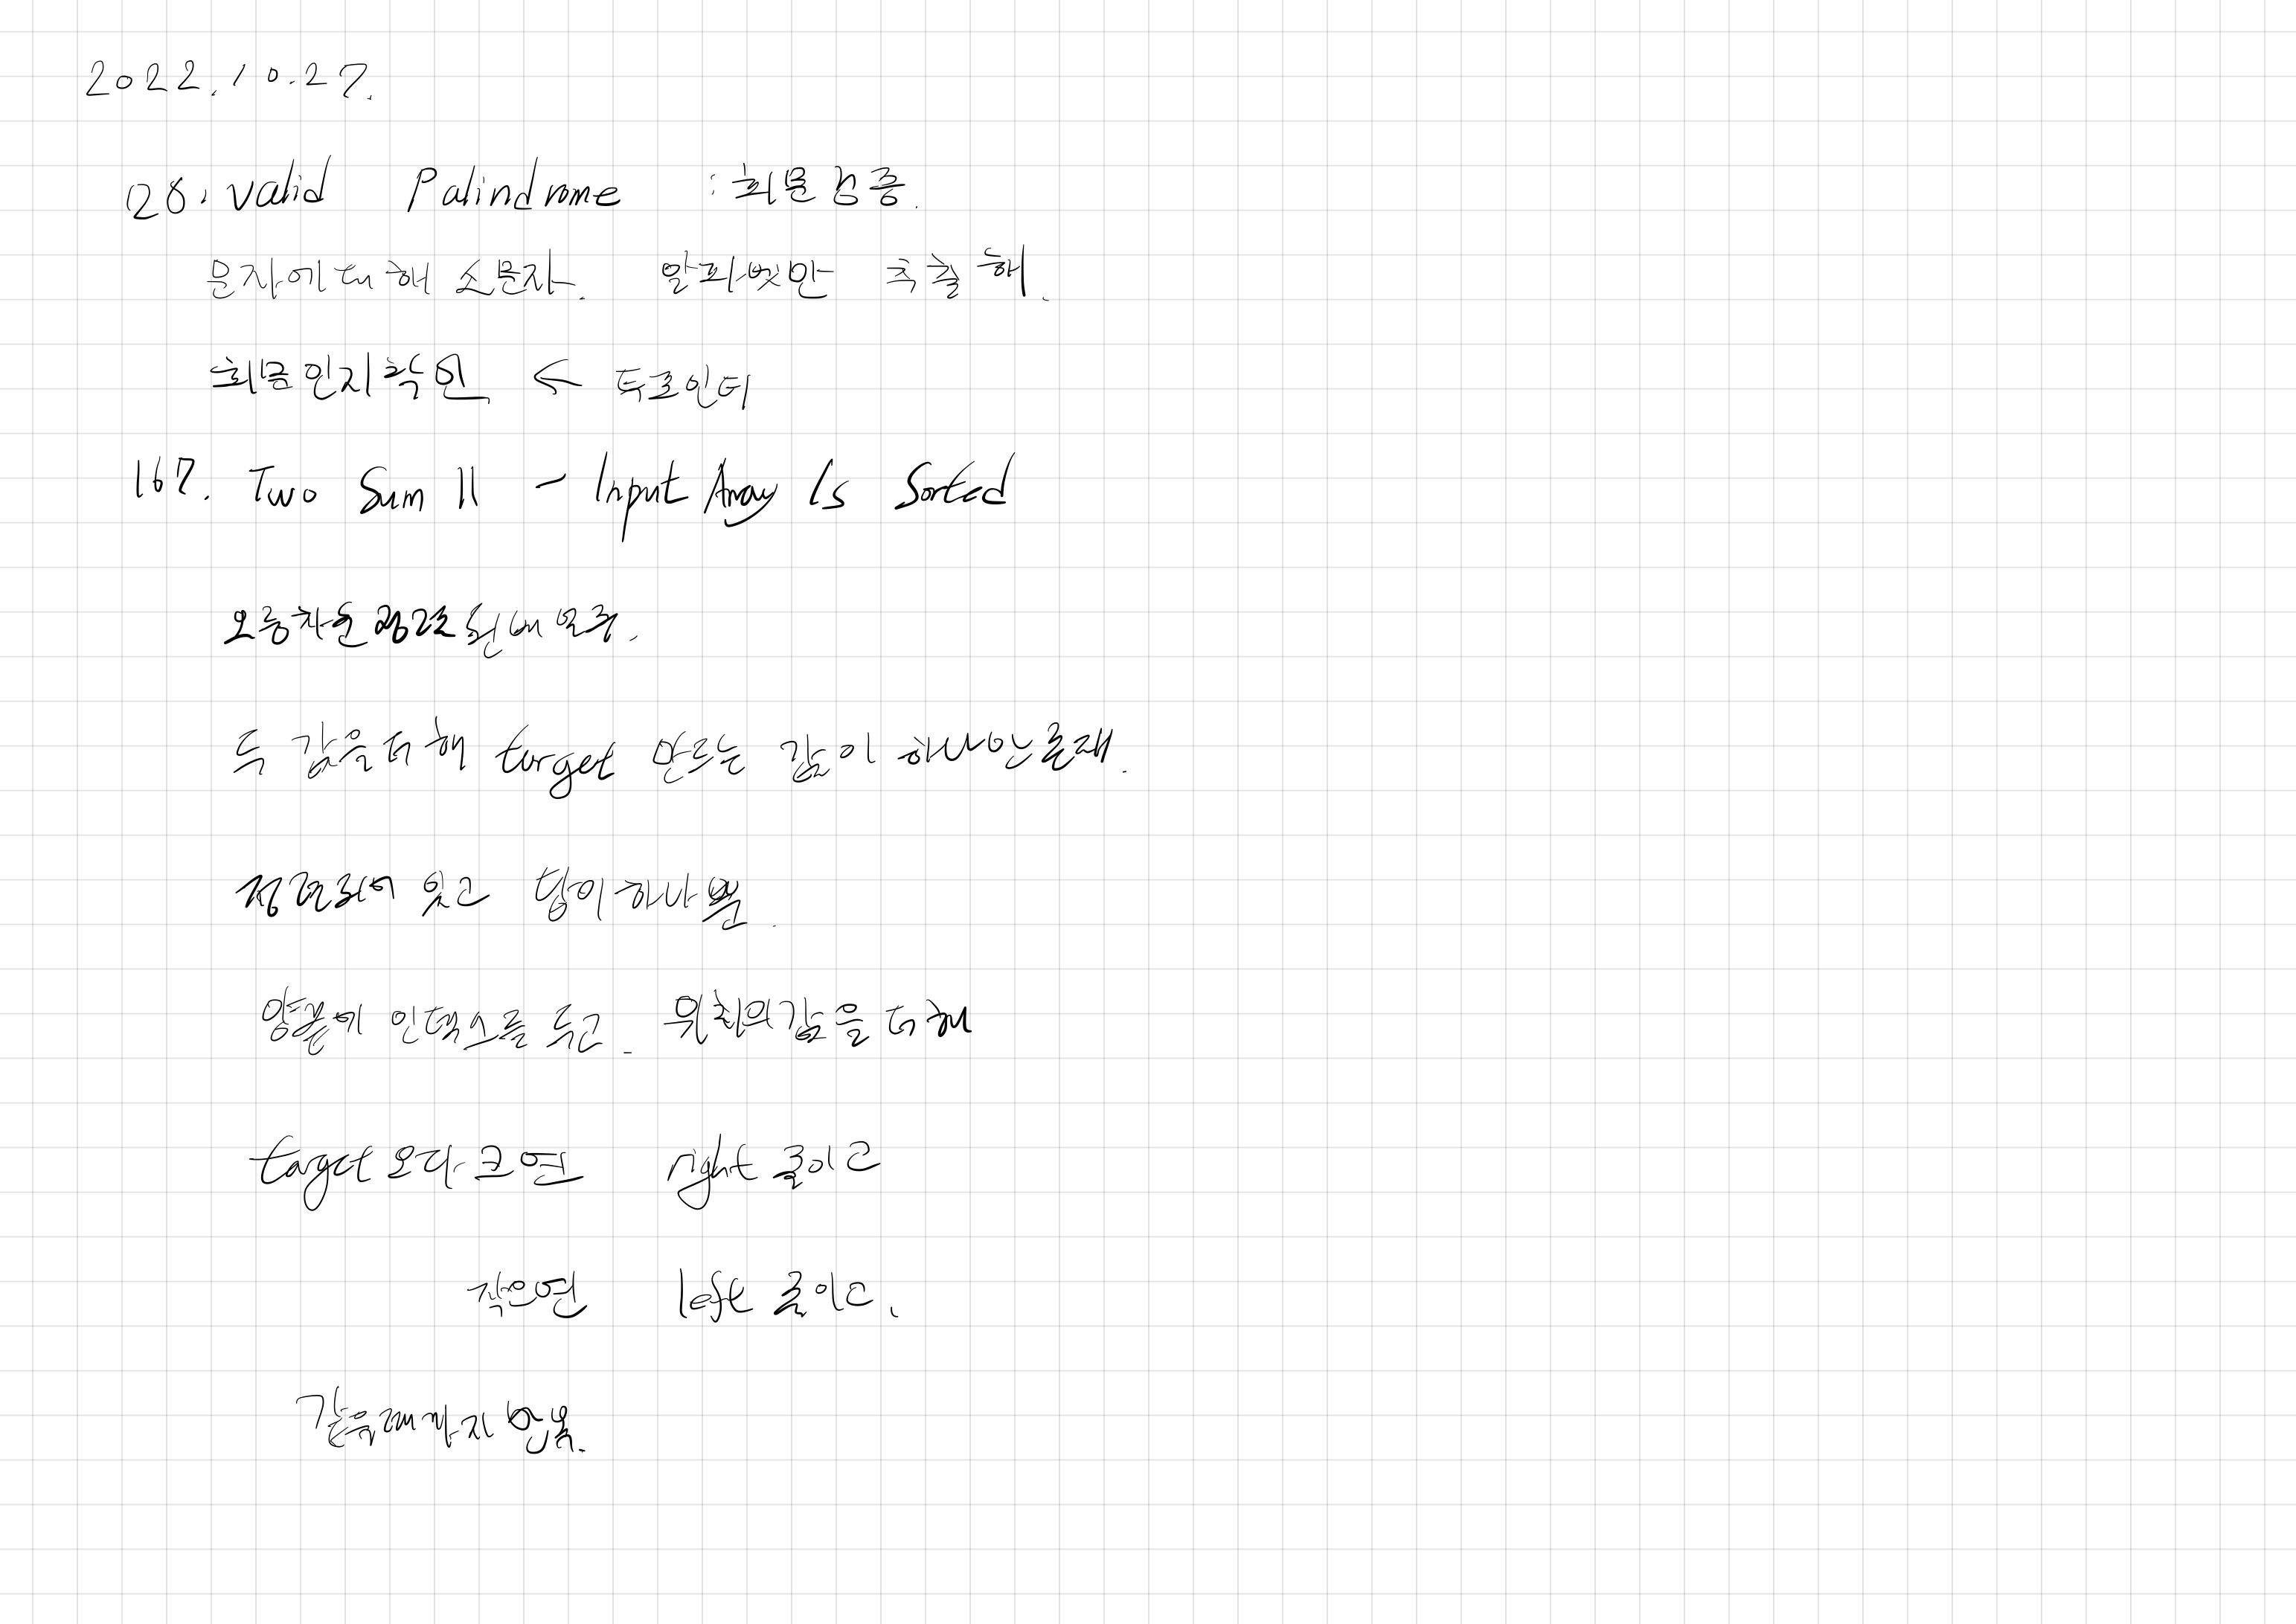 2022.10.27.
28. Valid Palindrome : 회문검증.
문자에대해 소문자. 알파벳만 추출해.
회문인지확인 ← 투포인터
167. Two Sum II - Input Array Is Sorted
오름차순정렬된배열중.
두 값을더해 target 만드는 값이 하나만존재.
정렬되어 있고 답이하나뿐.
양끝에 인덱스를 두고. 위치의값을더해
target보다크면 right 줄이고
작으면 left 줄이고.
같을때까지 반복.